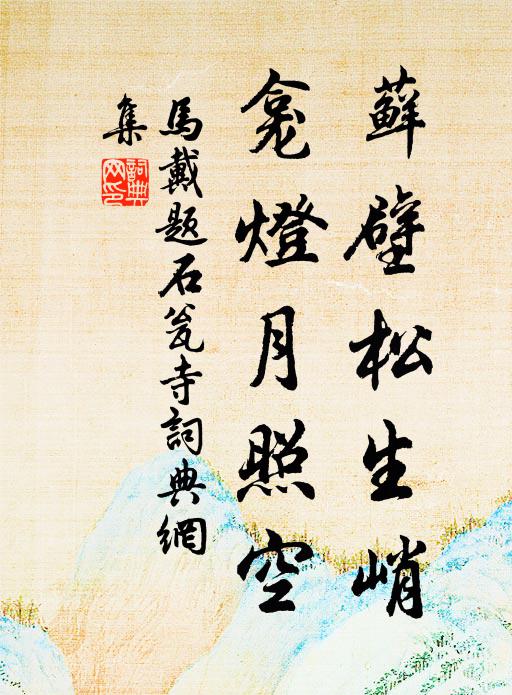 蘚壁松生峭
龕燈月照空
馬戴题石瓮寺詞典網
集
詞典网印